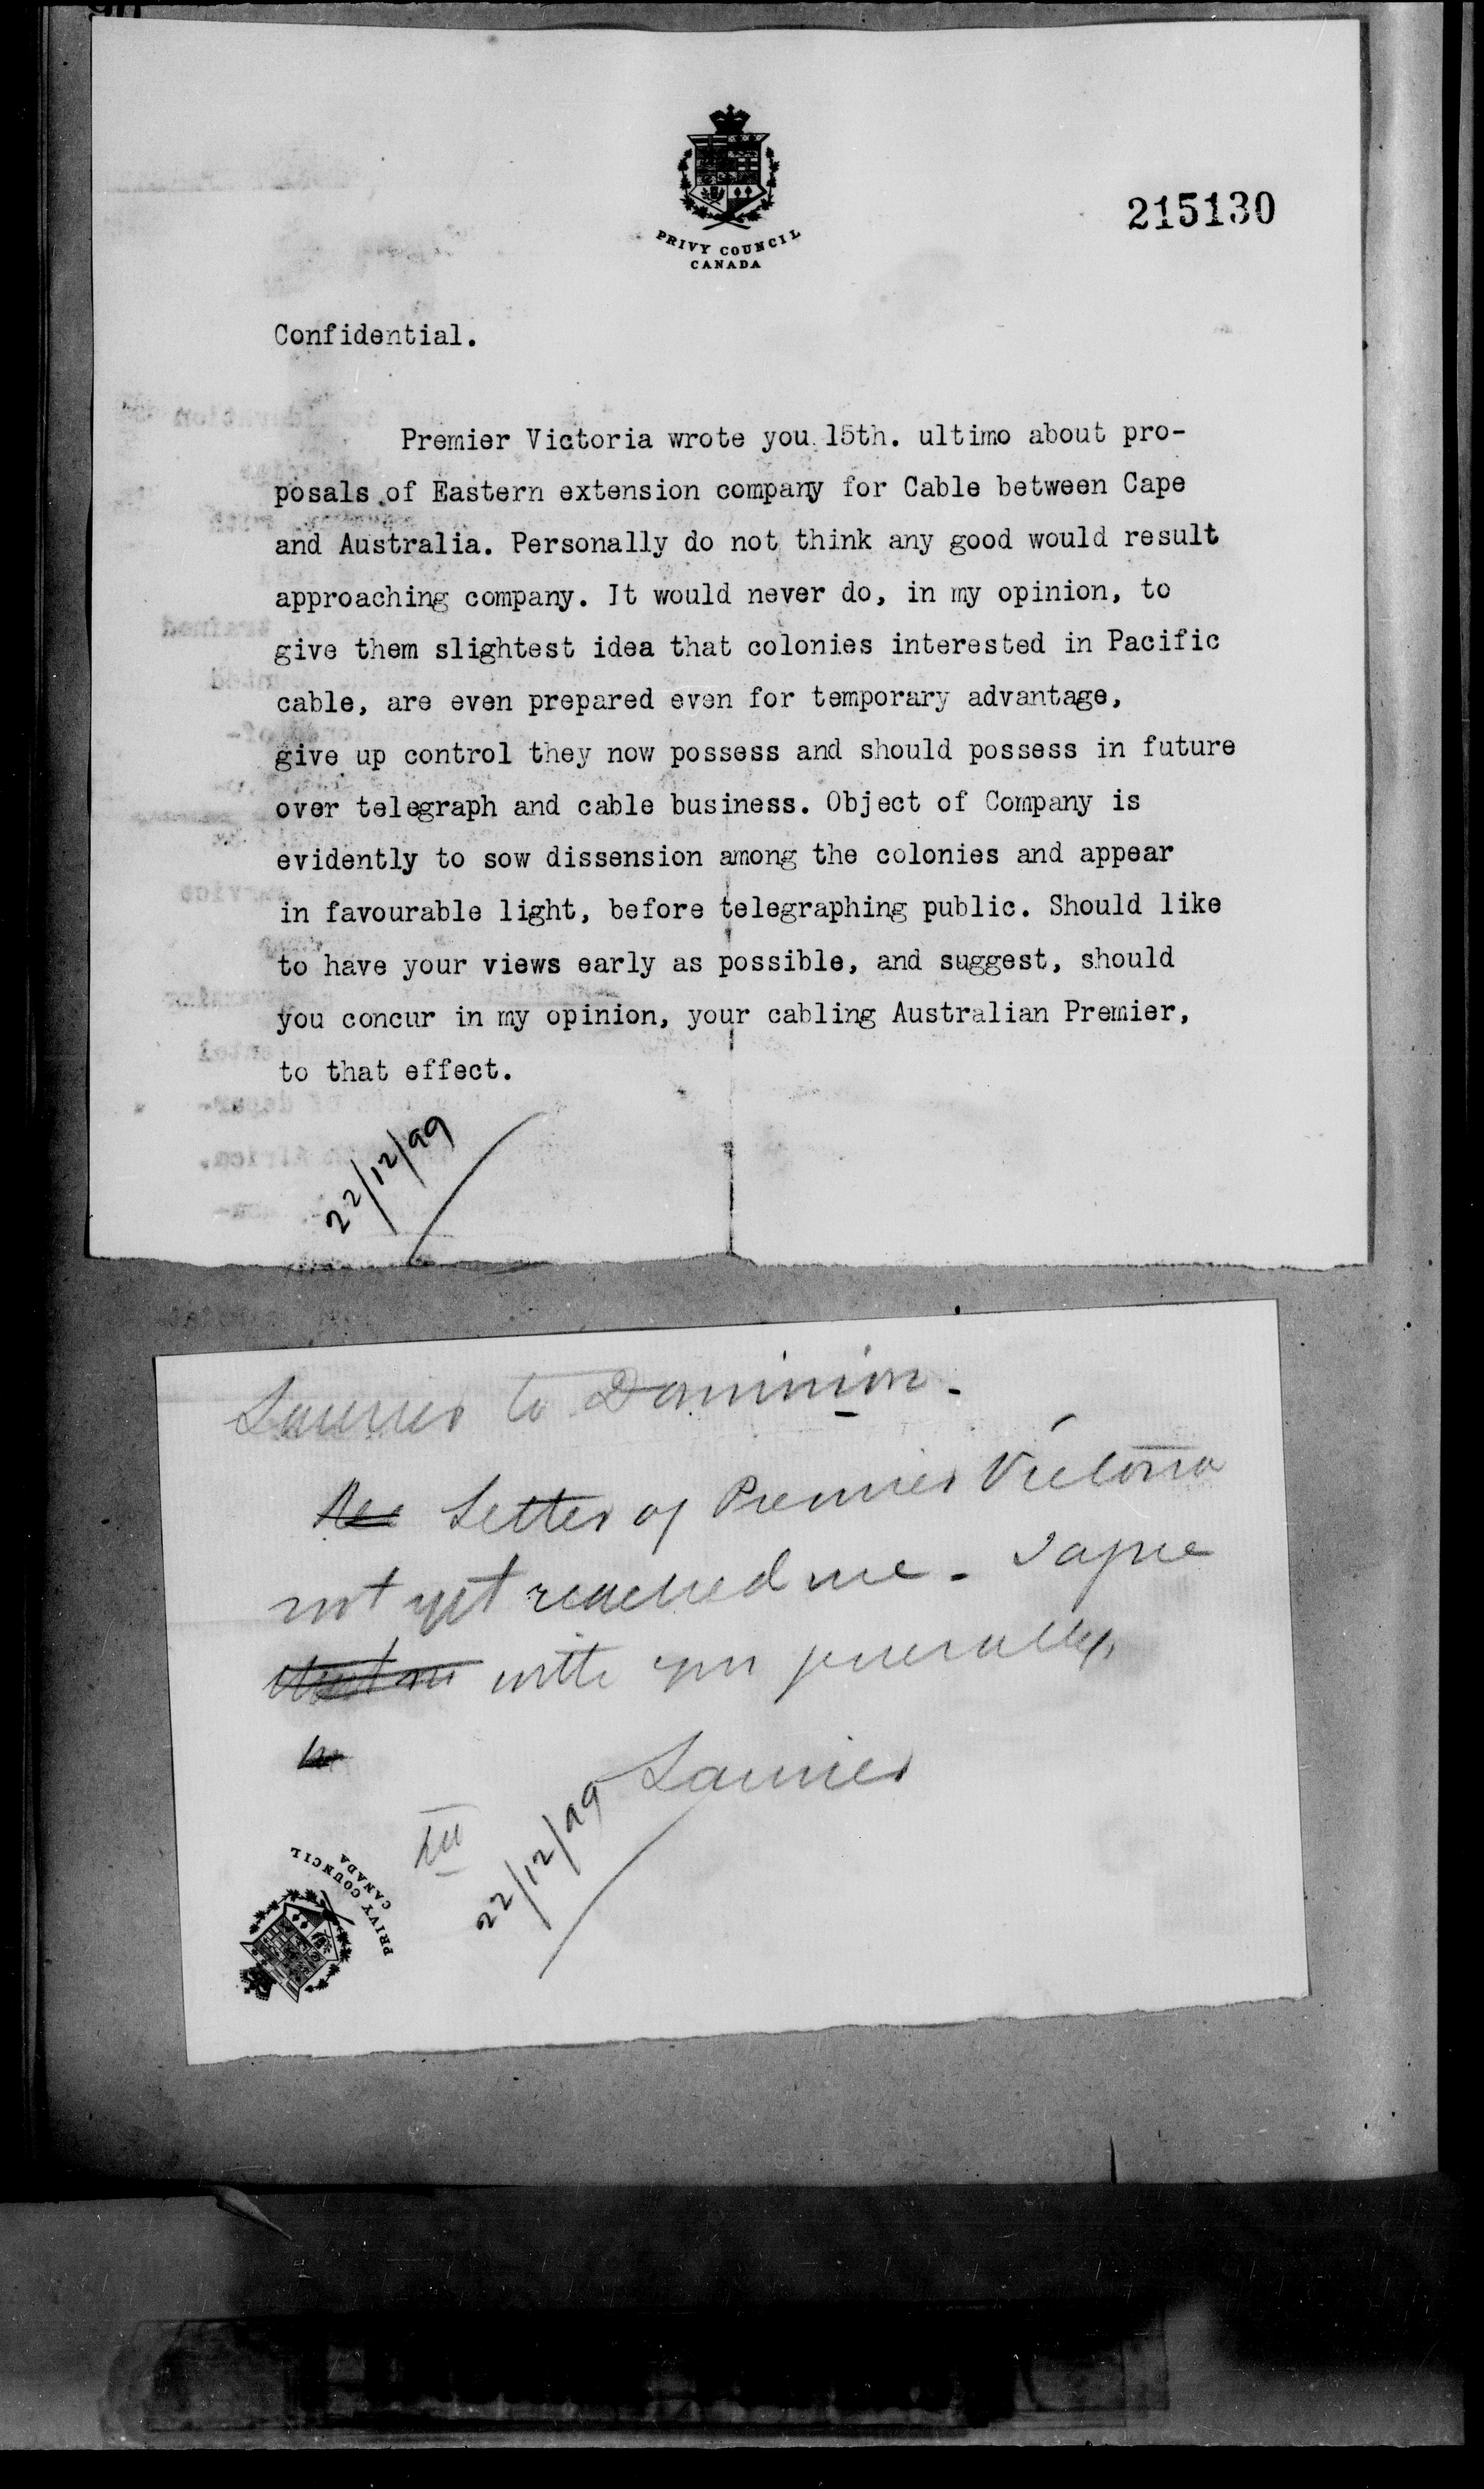 PRIVY COUNCIL
CANADA
215130
Confidential.
Premier Victoria wrote you 15th. ultimo about pro-
posals of Eastern extension company for Cable between Cape
and Australia. Personally do not think any good would result
approaching company. It would never do, in my opinion, to
give them slightest idea that colonies interested in Pacific
cable, are even prepared even for temporary advantage,
give up control they now possess and should possess in future
over telegraph and cable business. Object of Company is
evidently to sow dissension among the colonies and appear
in favourable light, before telegraphing public. Should like
to have your views early as possible, and suggest, should
you concur in my opinion, your cabling Australian Premier,
to that effect.
22/12/99
Laurier to Dominion.
Letter of Premier Victoria
not yet reached me. I agree
with you generally,
Laurier
22/12/99
PRIVY COUNCIL
CANADA